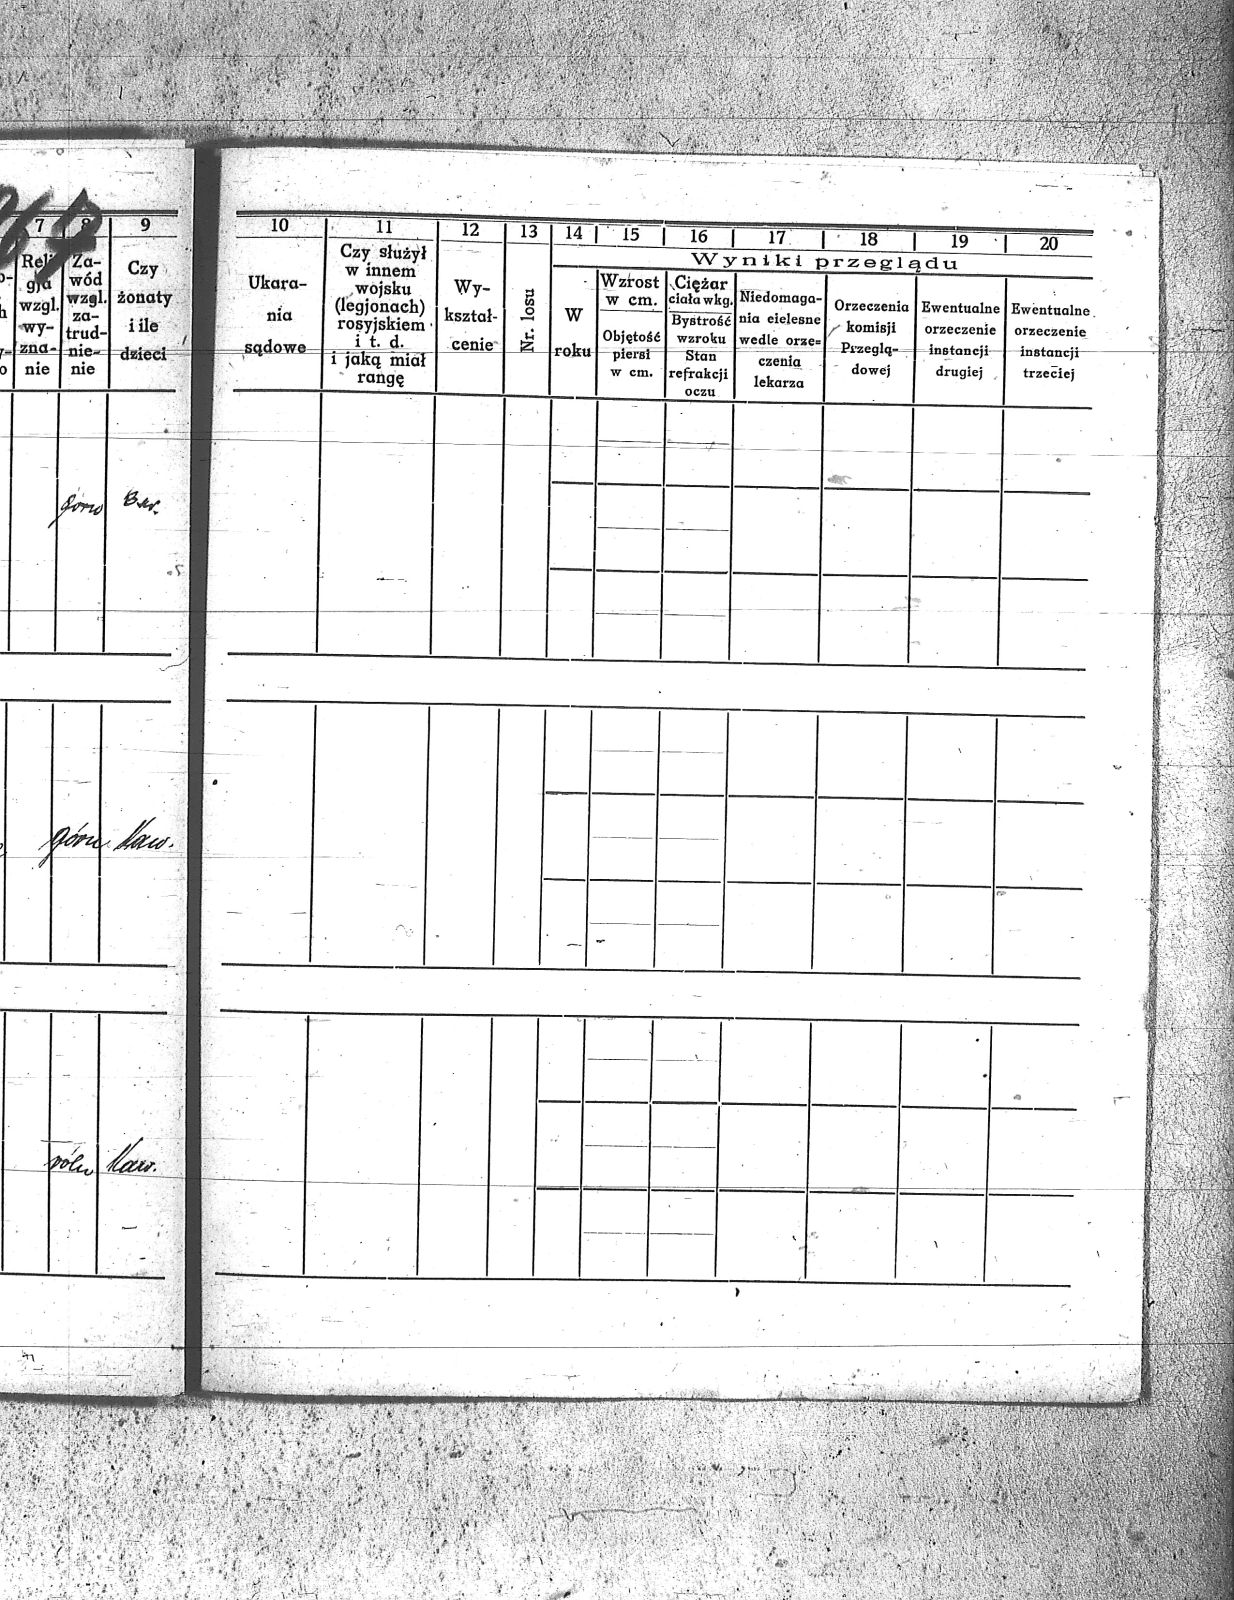 7 8 9
Reli
gja
wzgl.
wy-
zna-
nie
Za-
wód
wzgl.
za-
trud-
nie-
nie
Czy
żonaty
i ile
dzieci
10 11 12 13 14 15 16 17 18 19 20
Ukara-
nia
sądowe
Czy służył
w innem
wojsku
(legjonach)
rosyjskiem
i t. d.
i jaką miał
rangę
Wy-
kształ-
cenie
Nr. losu
Wyniki przeglądu
W
roku
Wzrost
w cm.
Objętość
piersi
w cm.
Ciężar
ciała wkg.
Bystrość
wzroku
Stan
refrakcji
oczu
Niedomaga-
nia cielesne
wedle orze=
czenia
lekarza
Orzeczenia
komisji
Przeglą-
dowej
Ewentualne
orzeczenie
instancji
drugiej
Ewentualne
orzeczenie
instancji
trzeciej
górn
górn. Kaw.
róln Kaw.